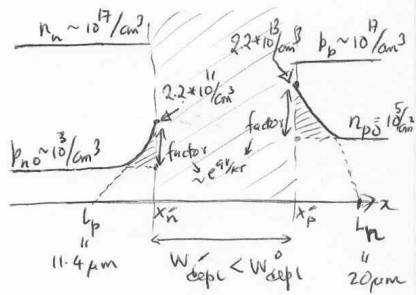 n_n ~ 10^17/cm³
2.2*10^13/cm³
p_p ~ 10^17/cm³
2.2*10^11/cm³
p_no ~ 10^3/cm³
factor
~ e^qV/kT
factor
n_po = 10^5/cm³
L_p
x_n'
x_p'
x
L_n
"
11.4 μm
W'_depl < W°_depl
"
20 μm